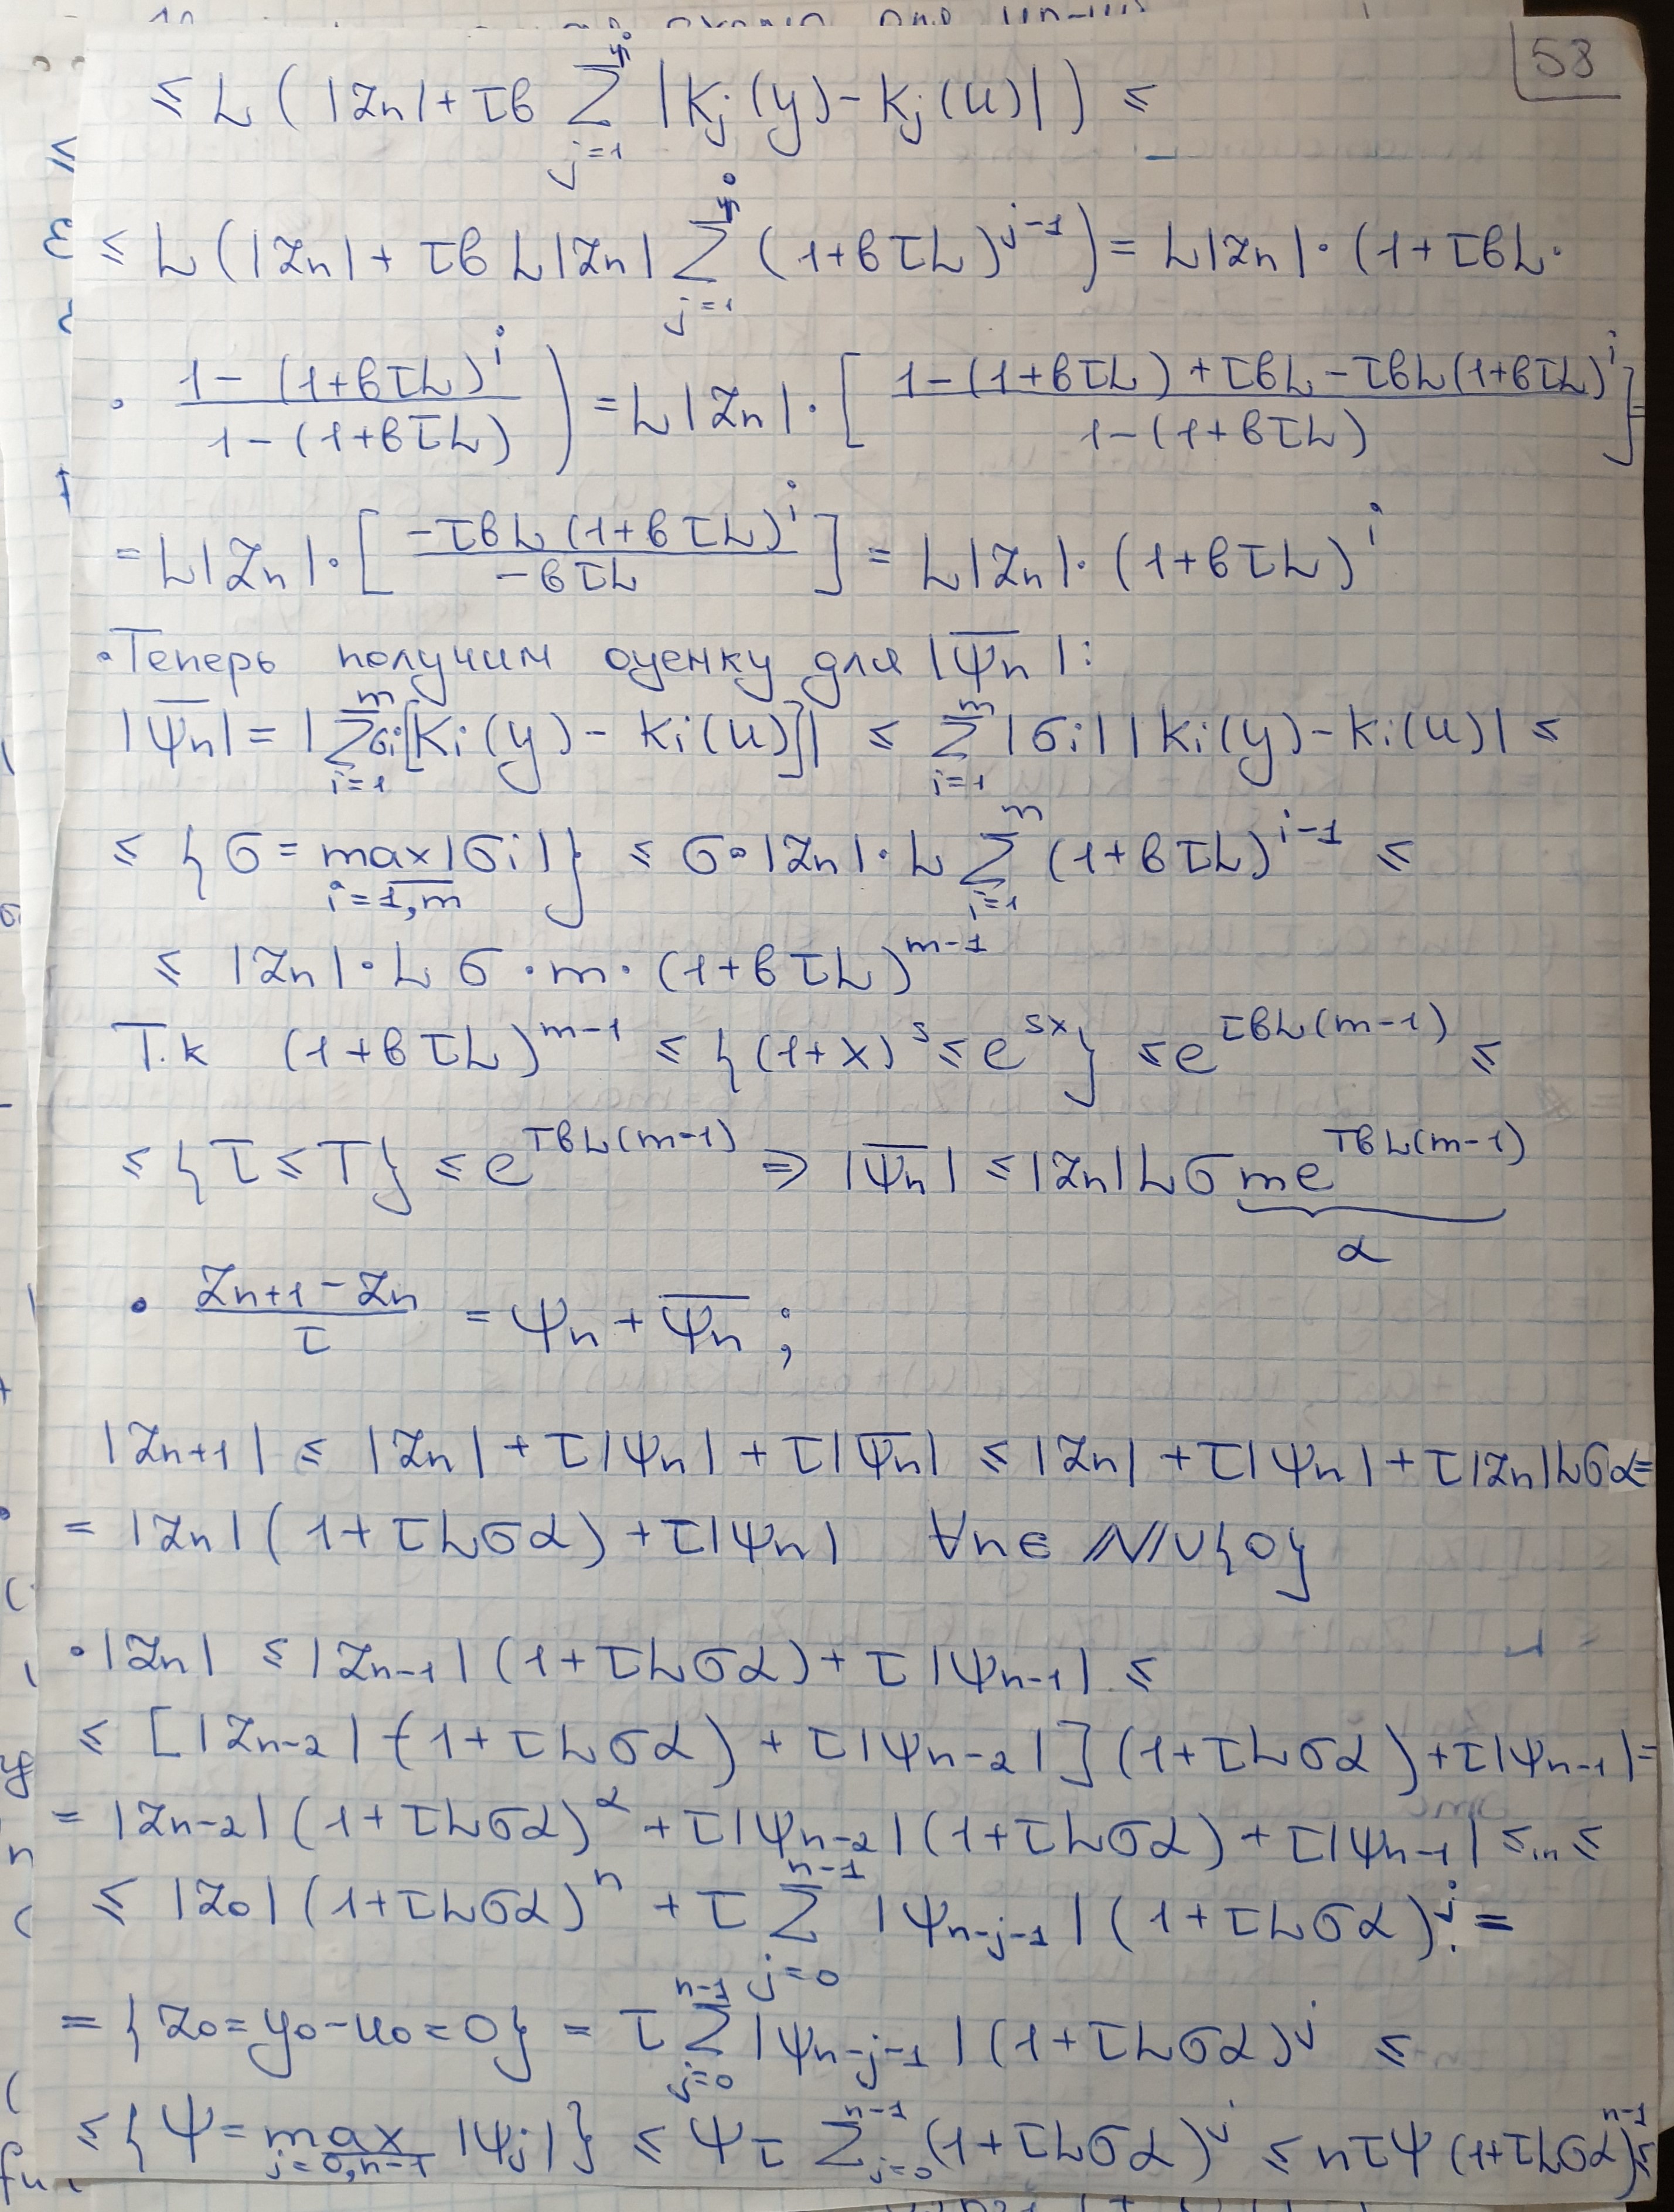 58
≤ L ( |Zn| + τb ∑_{j=1}^{i} |Kj(y) - Kj(u)| ) ≤
≤ L ( |Zn| + τb L|Zn| ∑_{j=1}^{i} (1+bτL)^{j-1} ) = L|Zn| · (1+τbL ·
· (1-(1+bτL)^i)/(1-(1+bτL)) ) = L|Zn| · [ (1-(1+bτL)+τbL-τbL(1+bτL)^i)/(1-(1+bτL)) ] =
= L|Zn| · [ (-τbL(1+bτL)^i)/(-bτL) ] = L|Zn| · (1+bτL)^i
• Теперь получим оценку для |ψ̅n| :
|ψ̅n| = | ∑_{i=1}^{m} σi[Ki(y) - Ki(u)] | ≤ ∑_{i=1}^{m} |σi| |Ki(y) - Ki(u)| ≤
≤ { σ = max_{i=1,m} |σi| } ≤ σ · |Zn| · L ∑_{i=1}^{m} (1+bτL)^{i-1} ≤
≤ |Zn| · L σ · m · (1+bτL)^{m-1}
Т.к (1+bτL)^{m-1} ≤ { (1+x)^s ≤ e^{sx} } ≤ e^{τbL(m-1)} ≤
≤ { τ ≤ T } ≤ e^{TbL(m-1)} ⇒ |ψ̅n| ≤ |Zn| L σ me^{TbL(m-1)}
α
• (Zn+1 - Zn)/τ = ψn + ψ̅n ;
|Zn+1| ≤ |Zn| + τ|ψn| + τ|ψ̅n| ≤ |Zn| + τ|ψn| + τ|Zn|Lσα =
= |Zn| (1+τLσα) + τ|ψn| ∀n∈ ℕ∪{0}
• |Zn| ≤ |Zn-1| (1+τLσα) + τ|ψn-1| ≤
≤ [ |Zn-2| (1+τLσα) + τ|ψn-2| ] (1+τLσα) + τ|ψn-1| =
= |Zn-2| (1+τLσα)^2 + τ|ψn-2| (1+τLσα) + τ|ψn-1| ≤ ... ≤
≤ |Z0| (1+τLσα)^n + τ ∑_{j=0}^{n-1} |ψn-j-1| (1+τLσα)^j =
= { Z0 = y0 - u0 = 0 } = τ ∑_{j=0}^{n-1} |ψn-j-1| (1+τLσα)^j ≤
≤ { ψ = max_{j=0,n-1} |ψj| } ≤ ψτ ∑_{j=0}^{n-1} (1+τLσα)^j ≤ nτψ (1+τLσα)^{n-1} ≤